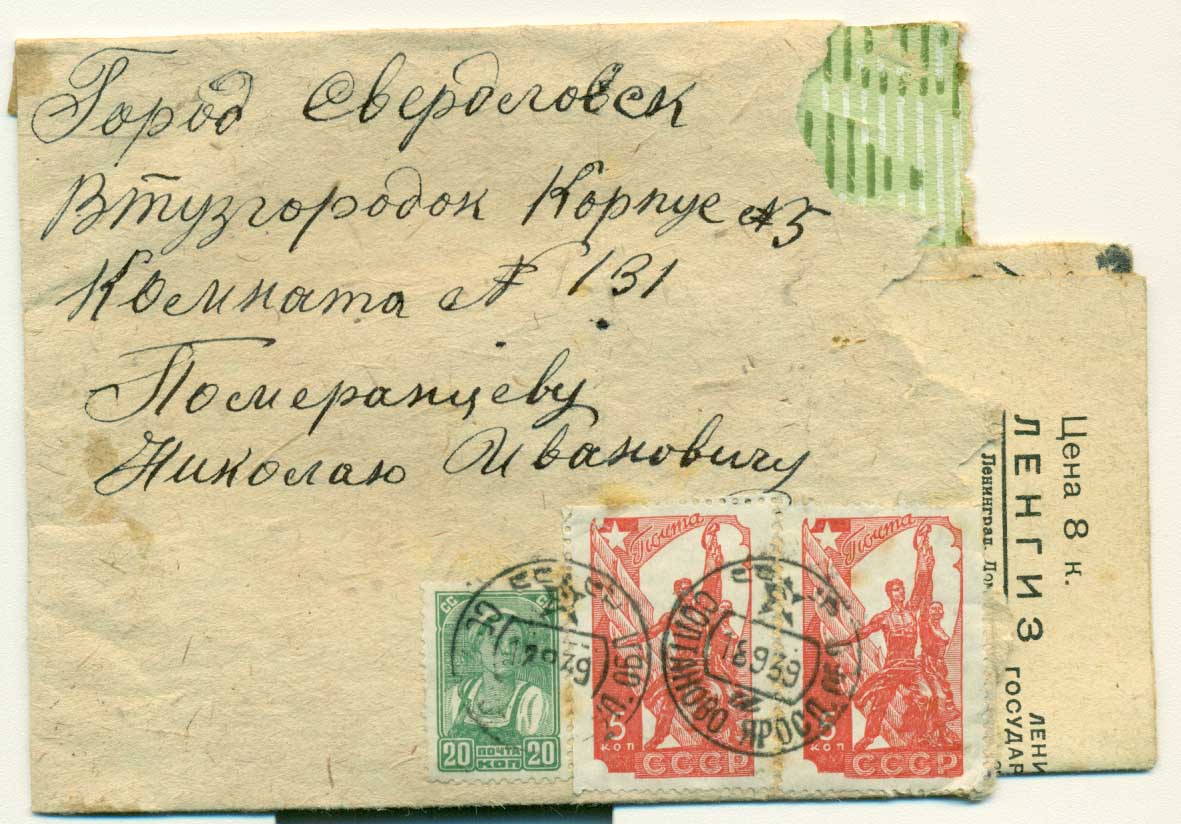 Город Свердловск
Втузгородок Корпус №5
Комната № 131
Померанцеву
Николаю Ивановичу
СС
20 ПОЧТА 20
КОП
Почта
5
КОП
СССР
Почта
5
КОП
СССР
18 9 39
СОПТАНОВО ЯРОСЛ. ОБЛ.
Л. ОБЛ
Цена 8 к.
ЛЕНГИЗ
Ленинград, До
ЛЕНИ
ГОСУДАР